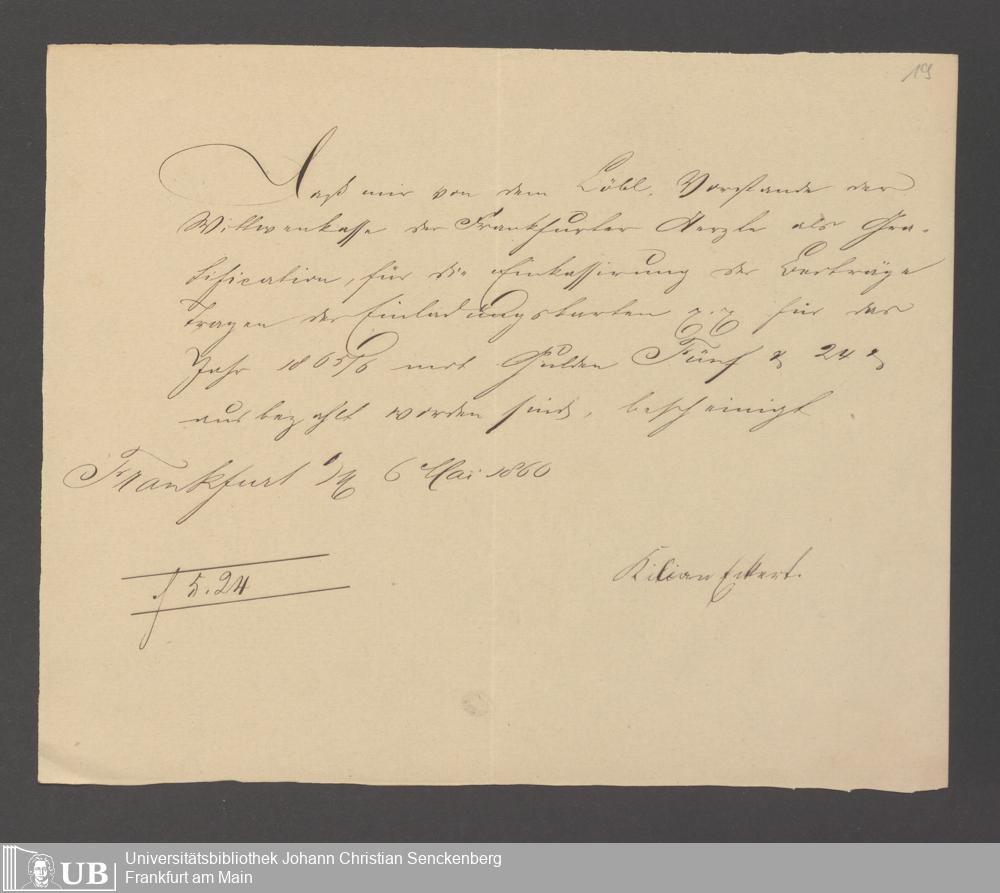 19
Daß mir von dem Löbl. Vorstande der
Wittwenkasse der Frankfurter Aerzte als Gra-
tification, für die Einkassirung der Beiträge
tragen der Einladungskarten für das
Jahr 1865/6 mit Gulden Fünf & 24 x
ausbezahlt worden sind, bescheinigt
Frankfurt a/M 6 Mai 1866
f 5.24
Kilian Eckert.
UB
Universitätsbibliothek Johann Christian Senckenberg
Frankfurt am Main